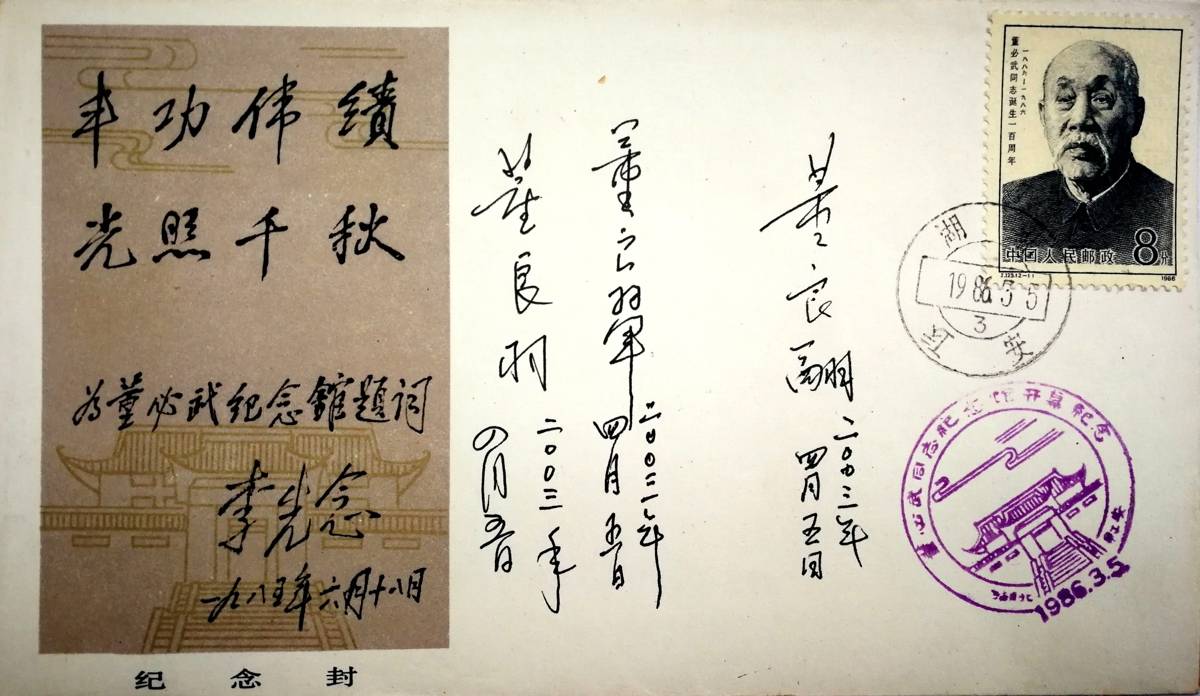 丰功伟績
光照千秋
为董必武纪念館题词
李先念
一九八五年六月十八日
纪念封
董良羽
二00三年
四月五日
董
二00三年
四月五日
董良翮
二00三年
四月五日
董必武同志诞生一百周年
一八八六—一九八六
中国人民邮政
8分
J.123.(2-1)
1986
湖
1986.3.5
3
红安
董必武同志纪念馆开幕纪念
1986.3.5